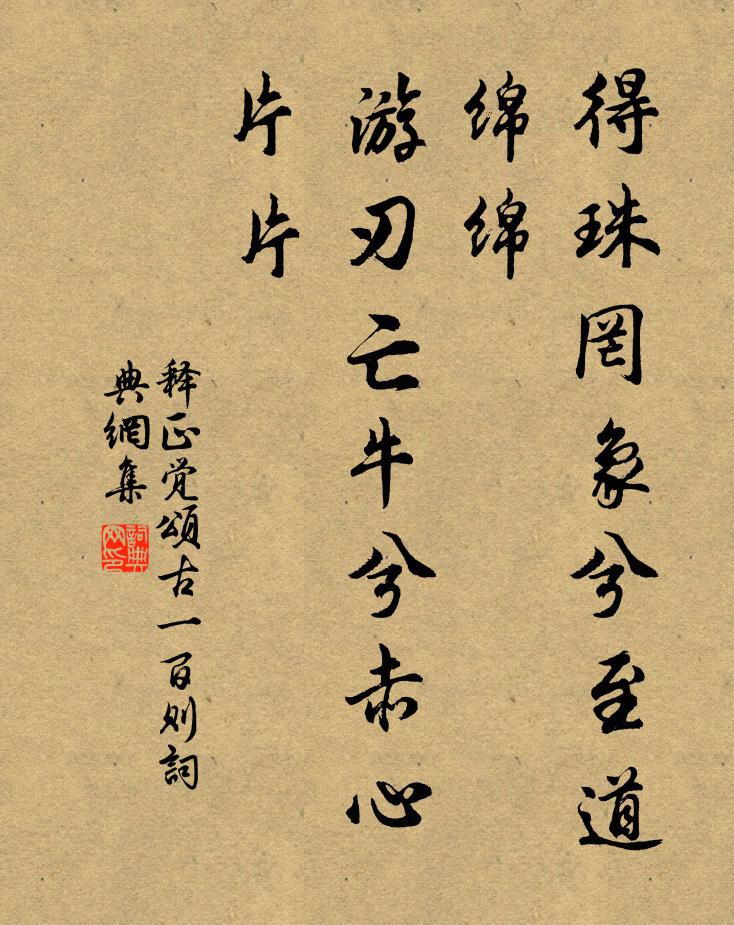 得珠罔象兮至道
绵绵
游刃亡牛兮赤心
片片
释正觉頌古一百则詞
典網集
詞典网印